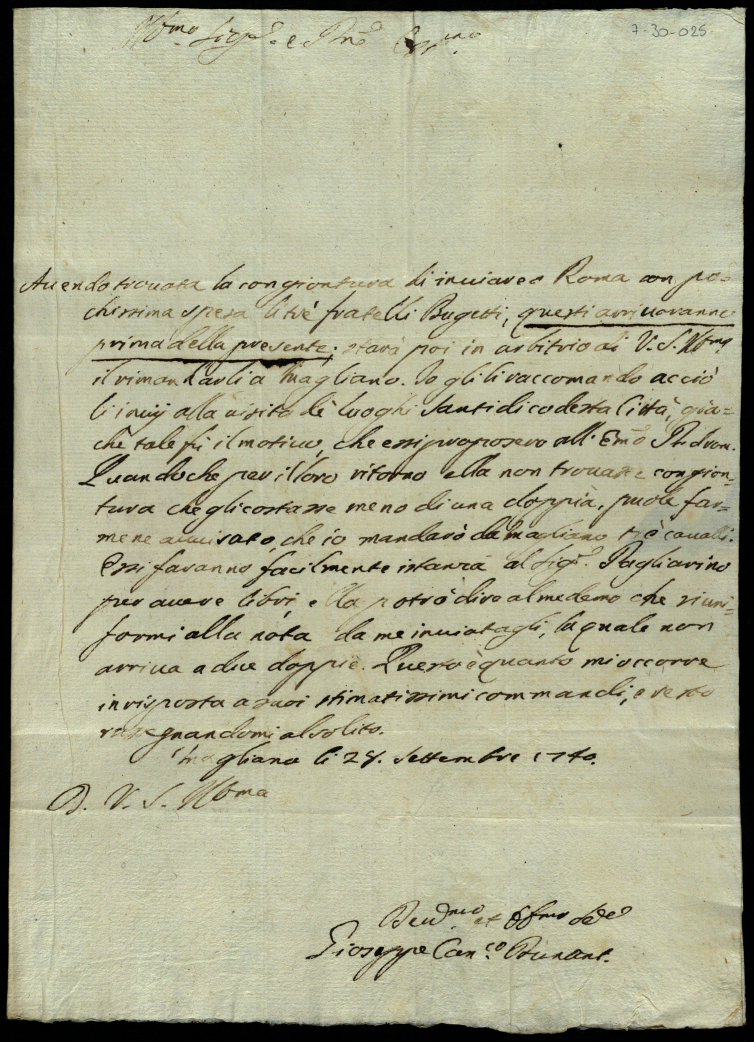 7-30-025
Illmo Sigre e Pne Colmo
Avendo trovata la congiontura di inviare a Roma con po=
chissima spesa li trè fratelli Bugetti, questi arrivaranno
prima della presente; starà poi in arbitrio di V. S. Illma
il rimandarli a Magliano. Io gli li raccomando acciò
li invij alla visita de luoghi Santi di codesta Città, già=
chè tale fù il motivo, che essi proposero all' Emo Padrone.
Quando che per il loro ritorno ella non trovasse congion=
tura che gli costasse meno di una doppia, puole far=
mene avvisato, che io mandarò da Magliano trè cavalli.
Essi faranno facilmente istanza al Sigre Pagliarino
per avere libri, ella potrà dire al medemo che si uni=
formi alla nota da me inviatagli, la quale non
arriva a due doppie. Questo è quanto mi occorre
in risposta a suoi stimatissimi commandi, e resto
rassegnandomi al solito.
Magliano li 28. Settembre 1740.
D. V. S. Illma
Devmo et Obbmo Sre
Gioseppe Canco